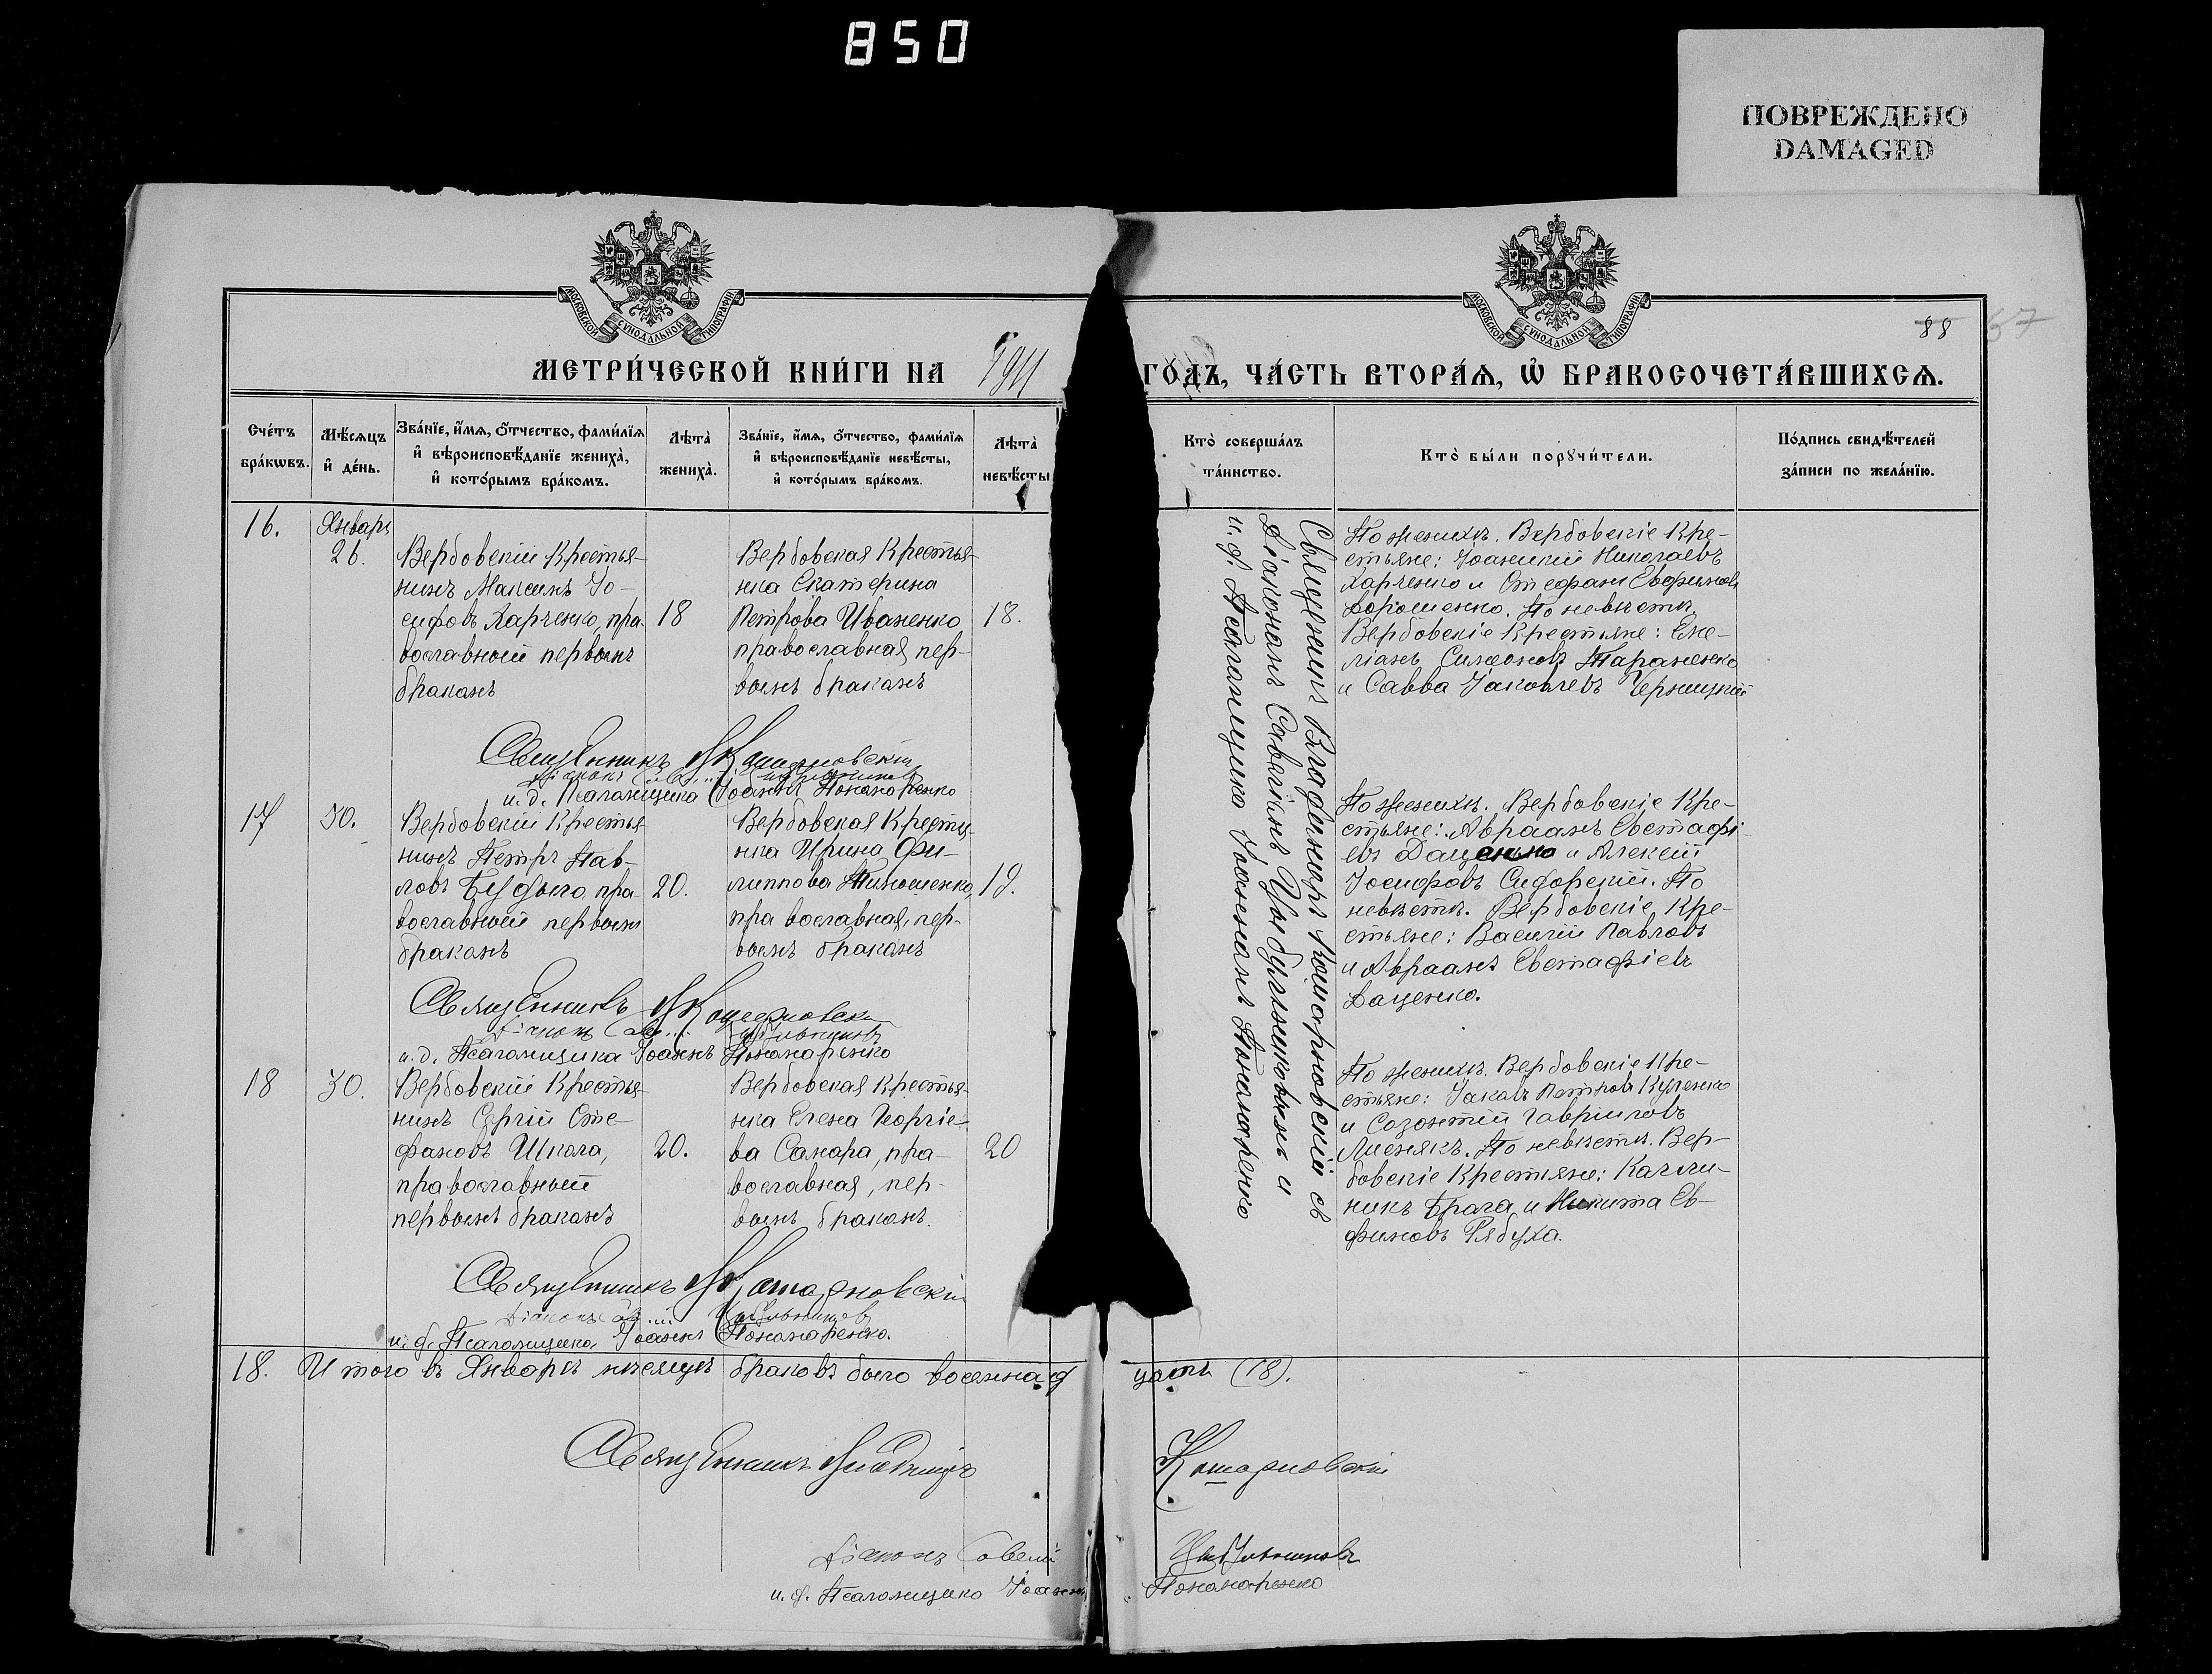 850
ПОВРЕЖДЕНО
DAMAGED
МОСКОВСКОЙ СѴНОДАЛЬНОЙ ТИПОГРАФІИ
МОСКОВСКОЙ СѴНОДАЛЬНОЙ ТИПОГРАФІИ
88 67
МЕТРИ́ЧЕСКОЙ КНИ́ГИ НА 1911
ГО́ДЪ, ЧА́СТЬ ВТОРА́Ѧ, Ѡ҆ БРАКОСОЧЕТА́ВШИХСѦ.
Сче́тъ
бра́кѡвъ.
Мѣ́сѧцъ
и҆ де́нь.
Зва́нїе, и҆́мѧ, ѻ҆́тчество, фами́лїѧ
и҆ вѣроисповѣ́данїе жениха̀,
и҆ кото́рымъ бра́комъ.
Лѣта̀
жениха̀.
Зва́нїе, и҆́мѧ, ѻ҆́тчество, фами́лїѧ
и҆ вѣроисповѣ́данїе невѣ́сты,
и҆ кото́рымъ бра́комъ.
Лѣта̀
невѣ́сты
Кто̀ соверша́лъ
та́инство.
Кто̀ бы́ли порꙋчи́тели.
По́дпись свидѣ́телей
за́писи по жела́нїю.
16.
Январь
26.
Вербовскій Крестья-
нинъ Максимъ Іо-
сифовъ Харченко, пра-
вославный первымъ
бракомъ
18
Вербовская Крестья-
нка Екатерина
Петрова Иваненко
православная, пер-
вымъ бракомъ
18.
Священникомъ Владиміромъ Комарновскій съ
Діакономъ Савеліемъ Цыбульниковымъ и
и.д. Псаломщика Іоанномъ Пономаренко
По женихѣ. Вербовскіе Кре-
стьяне: Іоанникій Николаевъ
Харченко и Стефанъ Евфимовъ
Дорошенко. По невѣстѣ.
Вербовскіе Крестьяне: Еме-
ліанъ Симоновъ Тараненко
и Савва Іаковлевъ Черницкій
Священникъ В Комарновскій
Діаконъ Савелій Цыбульниковъ
и.д. Псаломщика Іоаннъ Пономаренко
17
30.
Вербовскій Крестья-
нинъ Петръ Пав-
ловъ Будыло, пра-
вославный первымъ
бракомъ
20.
Вербовская Крестья-
нка Ирина Фи-
липпова Тимошенко,
православная, пер-
вымъ бракомъ
19.
По женихѣ. Вербовскіе Кре-
стьяне: Авраамъ Евстафі-
евъ Даценко и Алексій
Іосифовъ Сидорскій. По
невѣстѣ. Вербовскіе Кре-
стьяне: Василій Павловъ
и Авраамъ Евстафіевъ
Даценко.
Священникъ В Комарновскій
Діаконъ Савелій Цыбульниковъ
и.д. Псаломщика Іоаннъ Пономаренко
18
30.
Вербовскій Крестья-
нинъ Сергій Сте-
фановъ Школа,
православный
первымъ бракомъ
20.
Вербовская Крестья-
нка Елена Георгіе-
ва Самора, пра-
вославная, пер-
вымъ бракомъ.
20
По женихѣ. Вербовскіе Кре-
стьяне: Іаковъ Петровъ Куленко
и Созонтій Гавриловъ
Лиснякъ. По невѣстѣ. Вер-
бовскіе Крестьяне: Калли-
никъ Брага и Никита Ев-
фимовъ Рябуха.
Священникъ В Комарновскій
Діаконъ Савелій Цыбульниковъ
и.д. Псаломщика, Іоаннъ Пономаренко.
18. Итого въ Январѣ мѣсяцѣ браковъ было восемнад
цать (18).
Священникъ Владиміръ Комарновскій
Діаконъ Савелій Цыбульниковъ
и.д. Псаломщика Іоаннъ Пономаренко